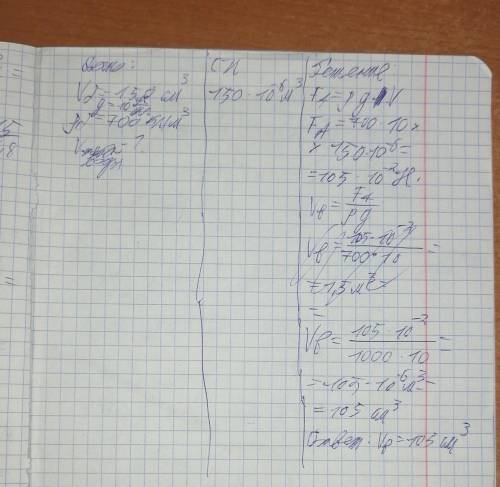 Дано:
V₂ = 150 см³
g = 10
ρ = 700 кг/м³
V воды ?
СИ
150 · 10⁻⁶ м³
Решение
F_A = ρ g V
F_A = 700 · 10 ×
× 150 · 10⁻⁶ =
= 105 · 10⁻² Н.
V_в = F_A / ρg
V_в = 105 · 10⁻² / 700 · 10 =
= 1,5 м³
=
V_в = 105 · 10⁻² / 1000 · 10 =
= 105 · 10⁻⁶ м³ =
= 105 см³
Ответ: V_в = 105 см³
15
=
=